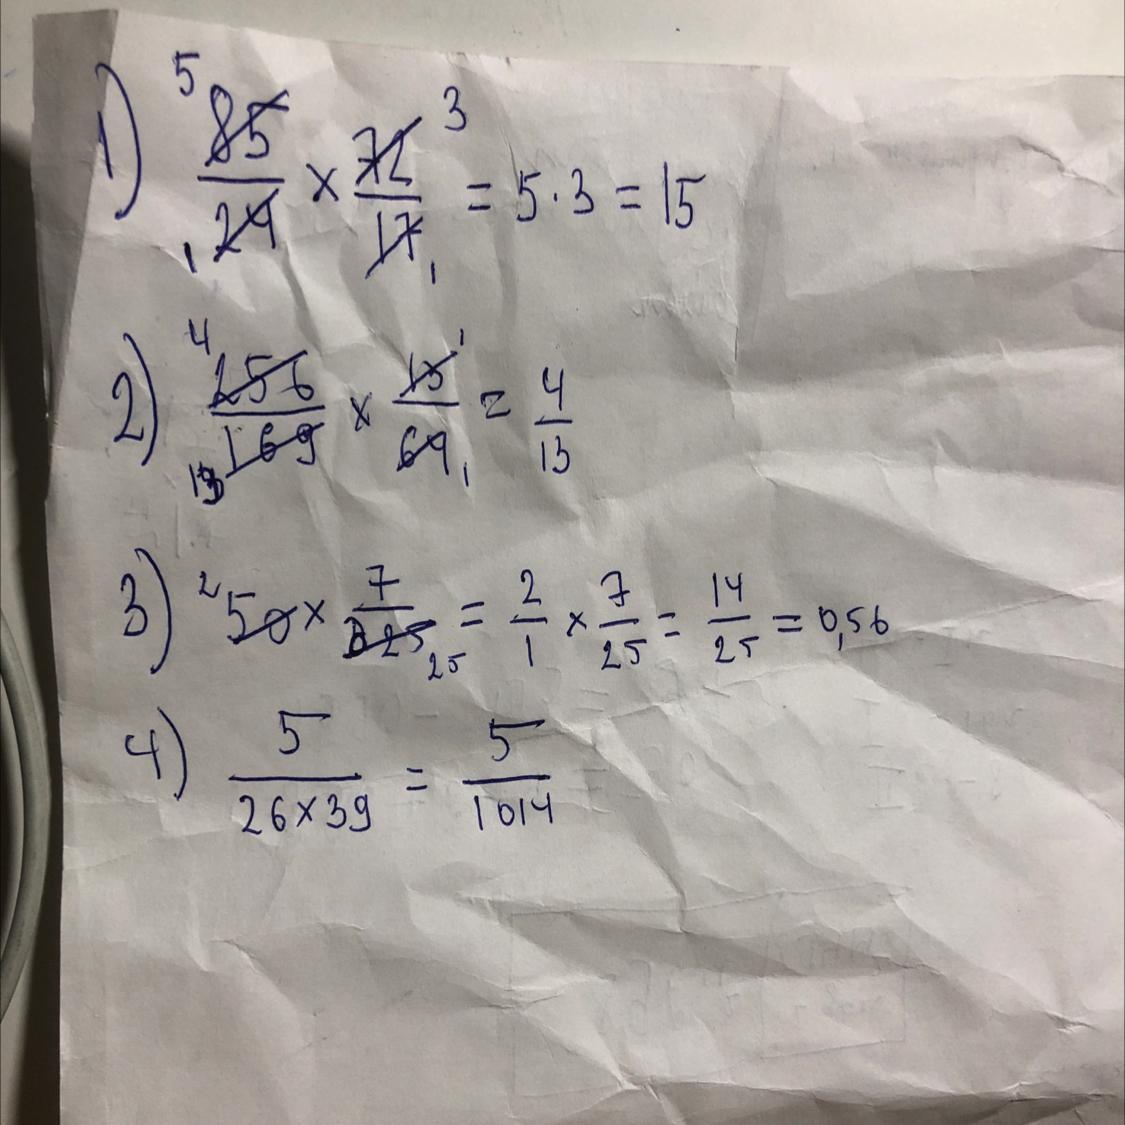 1) 5 85/24 1 × 72 3/17 1 = 5·3 = 15
2) 4 256/169 13 × 13 1/64 1 = 4/13
3) 2 50 × 7/625 25 = 2/1 × 7/25 = 14/25 = 0,56
4) 5/26×39 = 5/1014